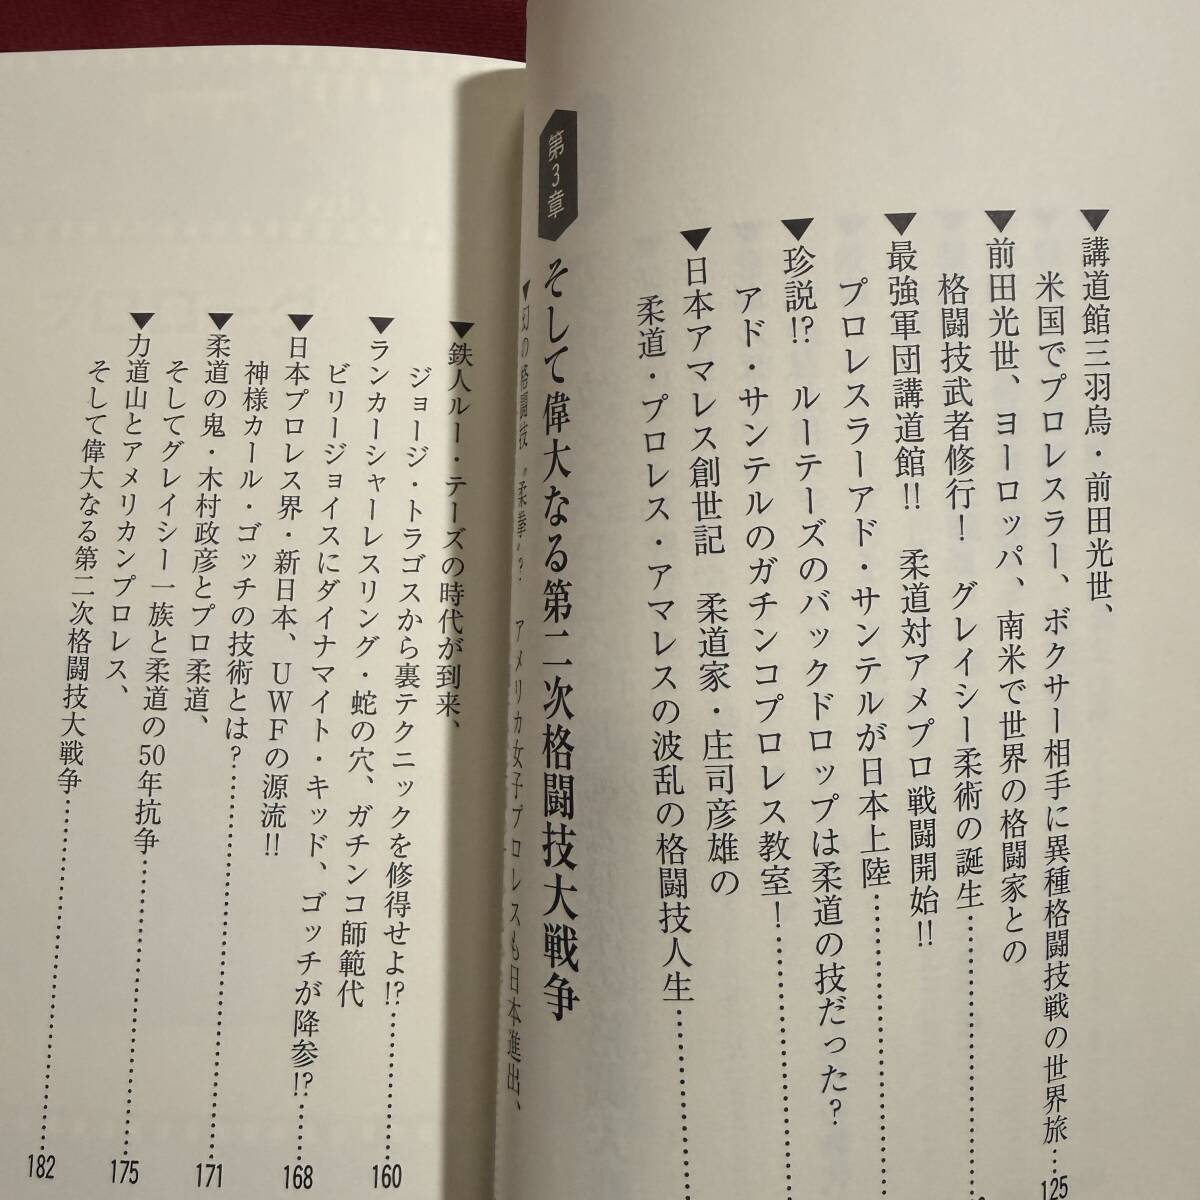 ▼講道館三羽烏・前田光世、
米国でプロレスラー、ボクサー相手に異種格闘技戦の世界旅…125
▼前田光世、ヨーロッパ、南米で世界の格闘家との
格闘技武者修行！　グレイシー柔術の誕生…………
▼最強軍団講道館!!　柔道対アメプロ戦闘開始!!
プロレスラーアド・サンテルが日本上陸…………
▼珍説!?　ルーテーズのバックドロップは柔道の技だった？
アド・サンテルのガチンコプロレス教室！…………
▼日本アマレス創世記　柔道家・庄司彦雄の
柔道・プロレス・アマレスの波乱の格闘技人生…………
第3章　そして偉大なる第二次格闘技大戦争
▼幻の格闘技“柔拳”？　アメリカ女子プロレスも日本進出、
▼鉄人ルー・テーズの時代が到来、
ジョージ・トラゴスから裏テクニックを修得せよ!?…………160
▼ランカーシャーレスリング・蛇の穴、ガチンコ師範代
ビリージョイスにダイナマイト・キッド、ゴッチが降参!?……168
▼日本プロレス界・新日本、UWFの源流!!
神様カール・ゴッチの技術とは？…………171
▼柔道の鬼・木村政彦とプロ柔道、
そしてグレイシー一族と柔道の50年抗争…………175
▼力道山とアメリカンプロレス、
そして偉大なる第二次格闘技大戦争…………182